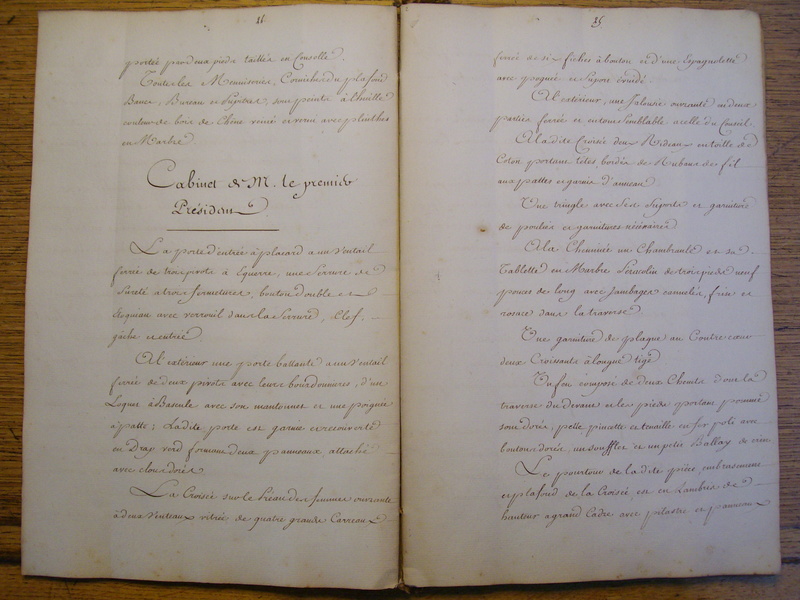 11
portée par deux pieds taillés en Consolle.
Toutes les Menuiseries, Corniches du plafond
Bancs, Bureau et Pupitres, sont peints à l'huille
couleur de bois de Chêne veiné et verni avec plinthes
en Marbre
Cabinet de M. le premier
Président
La porte d'entrée à placard a un Venteail
ferrée de trois pivots à Equerre, une Serrure de
Sureté a trois fermetures, bouton double et
Crequeau avec verrouil dans la Serrure, Clef,
gache et entrée
A l'extérieur une porte battante a un Ventail
ferrée de deux pivots avec leurs bourdonnieres, d'un
Loquet à Bascule avec son mantonnet et une poignée
à patte; La dite porte est garnie et recouverte
en Drap verd formant deux panneaux attaché
avec cloux dorés
La Croisée sur le Préau des femmes ouvrante
à deux Venteaux vitrée de quatre grands Carreaux
15
ferrée de six fiches à bouton et d'une Espagnolette
avec poignée et Suport évuidé.
A l'extérieur, une Jalousie ouvrante en deux
parties ferrée et en tout semblable a celle du Conseil.
A la dite Croisée deux Rideaux en toille de
Coton portant têtes bordés de Rubans de fil
aux pattes et garnis d'anneaux
Une tringle avec ses Suports et garniture
de poulies et garnitures nécéssaires
A la Cheminée un Chambranle et sa
Tablette en Marbre Serancolin de trois pieds neuf
pouces de long avec Jambages canneles, frise et
rosace dans la traverse
Une garniture de plaque au Contre cœur
deux Croissants à longue tige
Un feu composé de deux Chenets dont la
traverse du devant et les pieds portant pommes
sont dorés, pelle pincette et tenaille en fer poli avec
boutons dorés, un soufflet et un petit Ballay de crin
Le pourtour de la dite pièce embrasement
et plafond de la Croisée, est en Lambris de
hauteur a grand Cadre avec pilastre et panneaux